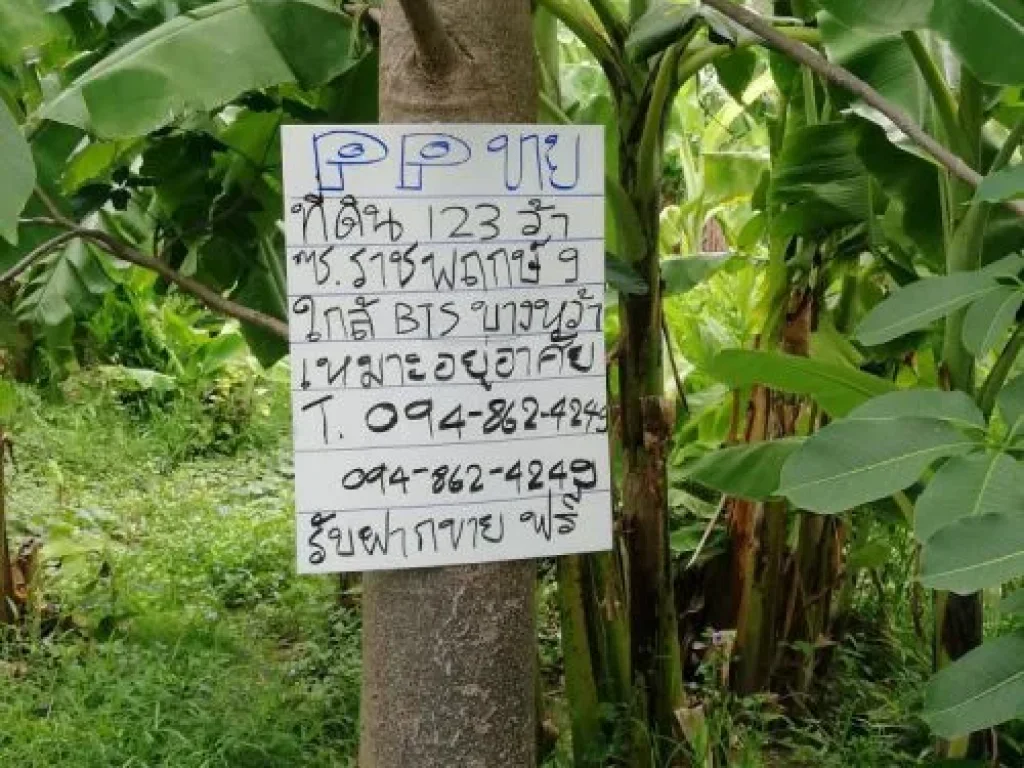 PP ขาย
ที่ดิน 123 ว้า
ซ.ราชพฤกษ์ 9
ใกล้ BTS บางหว้า
เหมาะอยู่อาศัย
T. 094-862-4249
094-862-4249
รับฝากขาย ฟรี